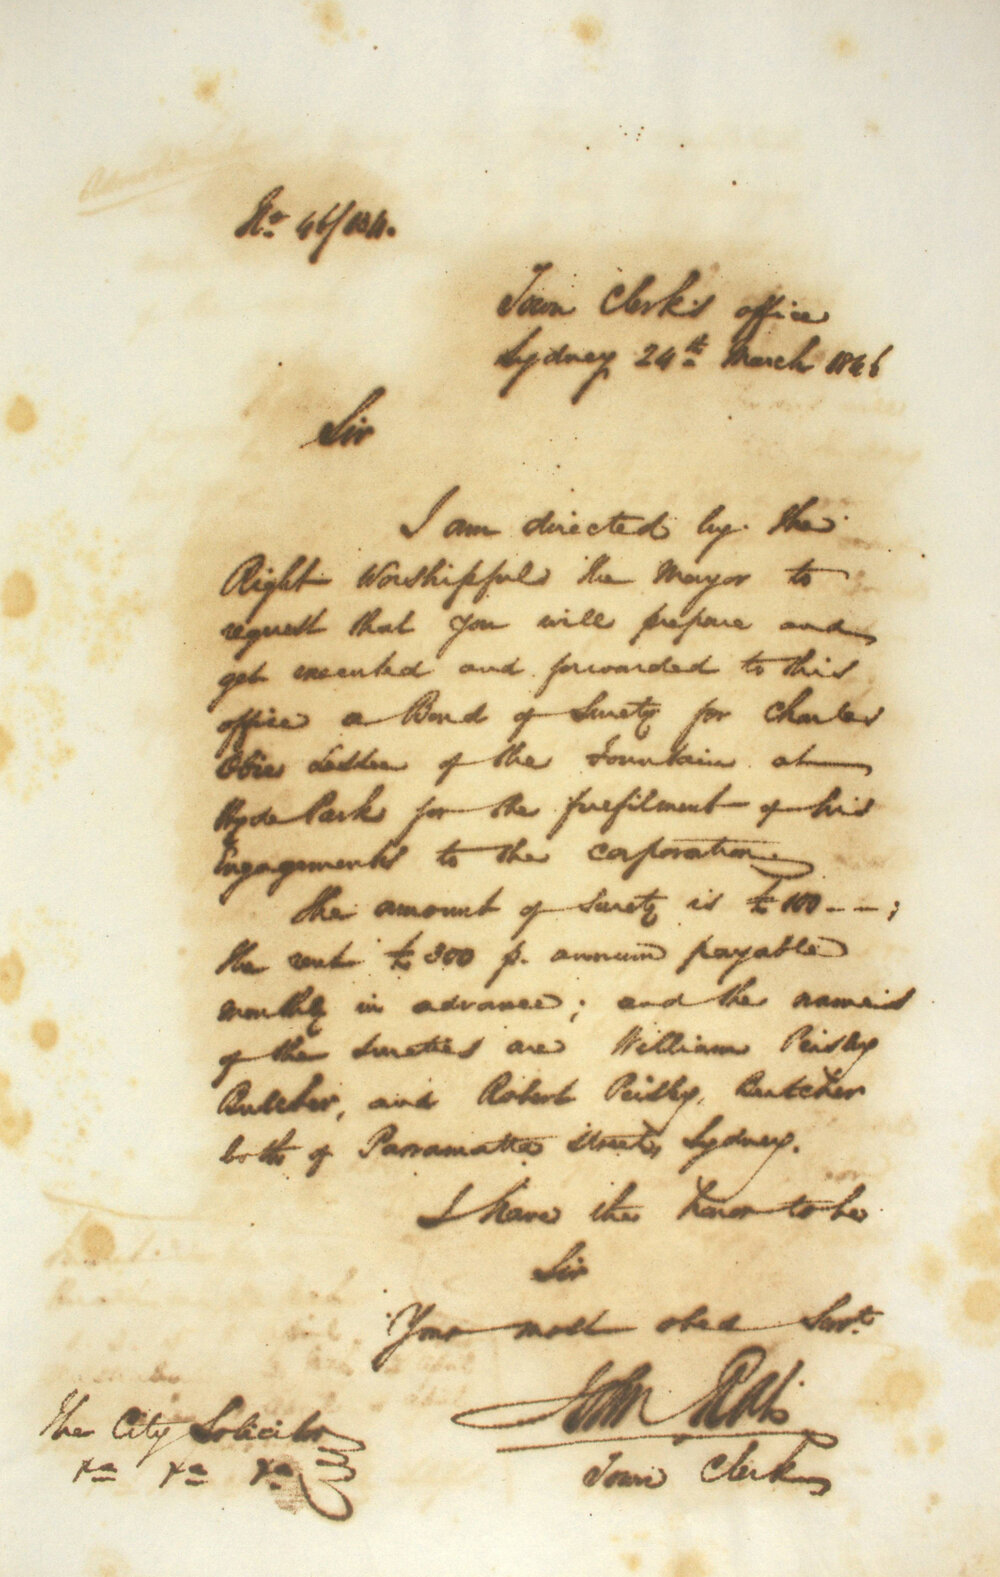 No. 46/134.
Town Clerk's office
Sydney 24th March 1846
Sir
I am directed by the
Right Worshipful the Mayor to
request that you will prepare and
get executed and forwarded to this
office a Bond of Surety for Charles
Lessee of the Fountain at
Hyde Park for the fulfilment of his
Engagements to the corporation.
The amount of Surety is £100 - - ;
the rent £300 p. annum payable
monthly in advance; and the names
of the Sureties are William Peisley
Butcher, and Robert Peisley, Butcher
both of Parramatta Street, Sydney.
I have the honor to be
Sir
Your most obed Servt.
John
Town Clerk
The City Solicitor
&a &a &a